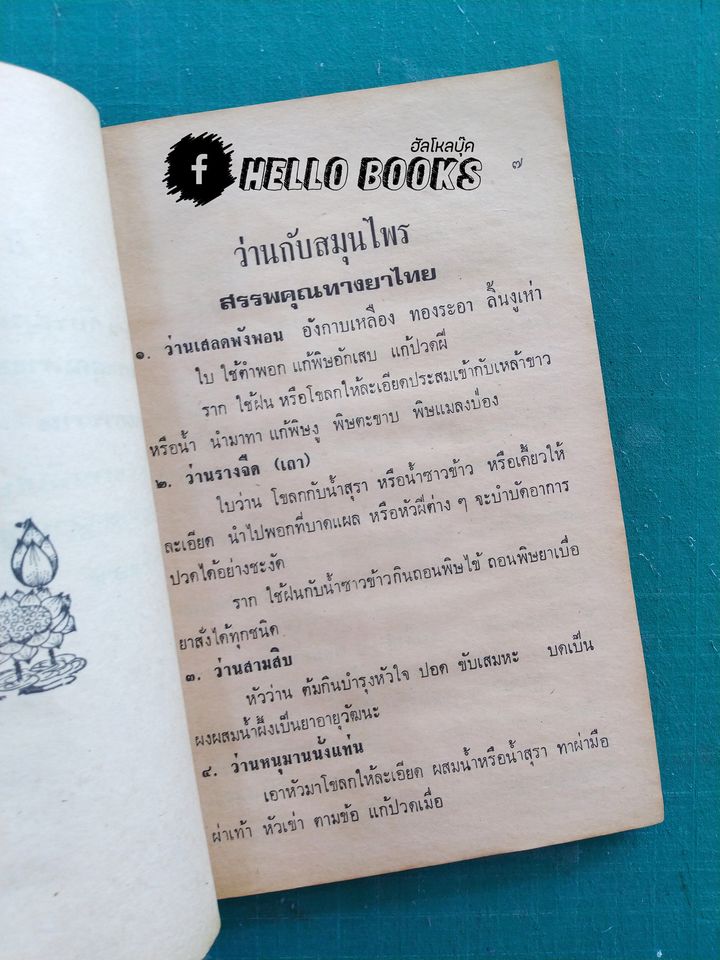 ฮัลโหลบุ๊ค
f HELLO BOOKS
๗
ว่านกับสมุนไพร
สรรพคุณทางยาไทย
๑. ว่านเสลดพังพอน อังกาบเหลือง ทองระอา ลิ้นงูเห่า
ใบ ใช้ตำพอก แก้พิษอักเสบ แก้ปวดฝี
ราก ใช้ฝน หรือโขลกให้ละเอียดประสมเข้ากับเหล้าขาว
หรือน้ำ นำมาทา แก้พิษงู พิษตะขาบ พิษแมลงป่อง
๒. ว่านรางจืด (เถา)
ใบว่าน โขลกกับน้ำสุรา หรือน้ำซาวข้าว หรือเคี้ยวให้
ละเอียด นำไปพอกที่บาดแผล หรือหัวฝีต่าง ๆ จะบำบัดอาการ
ปวดได้อย่างชะงัด
ราก ใช้ฝนกับน้ำซาวข้าวกินถอนพิษไข้ ถอนพิษยาเบื่อ
ยาสั่งได้ทุกชนิด
๓. ว่านสามสิบ
หัวว่าน ต้มกินบำรุงหัวใจ ปอด ขับเสมหะ บดเป็น
ผงผสมน้ำผึ้งเป็นยาอายุวัฒนะ
๔. ว่านหนุมานนั่งแท่น
เอาหัวมาโขลกให้ละเอียด ผสมน้ำหรือน้ำสุรา ทาฝ่ามือ
ฝ่าเท้า หัวเข่า ตามข้อ แก้ปวดเมื่อ